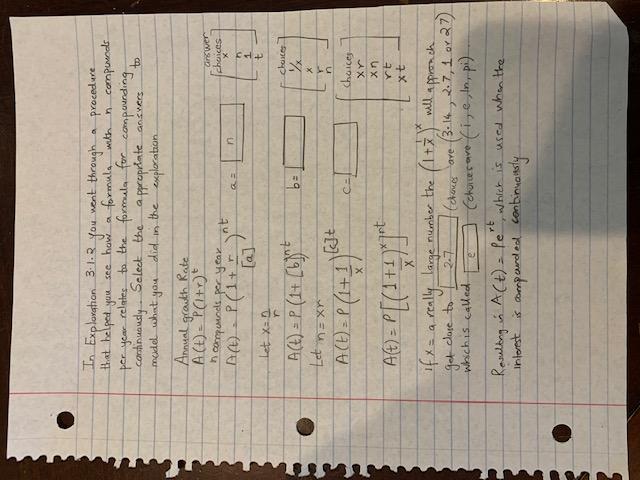 In Exploration 3.1.2 you went through a procedure
that helped you see how a formula with n compounds
per year relates to the formula for compounding
continuously. Select the appropriate answers to
model what you did in the exploration
Annual growth Rate
A(t) = P(1+r)^t
n compounds per year
A(t) = P(1 + r/[a])^nt
a = n
answer choices
x
n
1
t
Let x = n/r
A(t) = P(1 + [b])^nt
b =
choices
1/x
x
r
n
Let n = xr
A(t) = P(1 + 1/x)^[c]t
c =
choices
xr
xn
rt
xt
A(t) = P[(1 + 1/x)^x]^nt
if x = a really large number the (1 + 1/x)^x will approach
get close to 2.7 (choices are (3.14, 2.7, 1 or 27)
which is called e (choices are (i, e, ln, pi)
Resulting in A(t) = Pe^rt, which is used when the
interest is compounded continuously